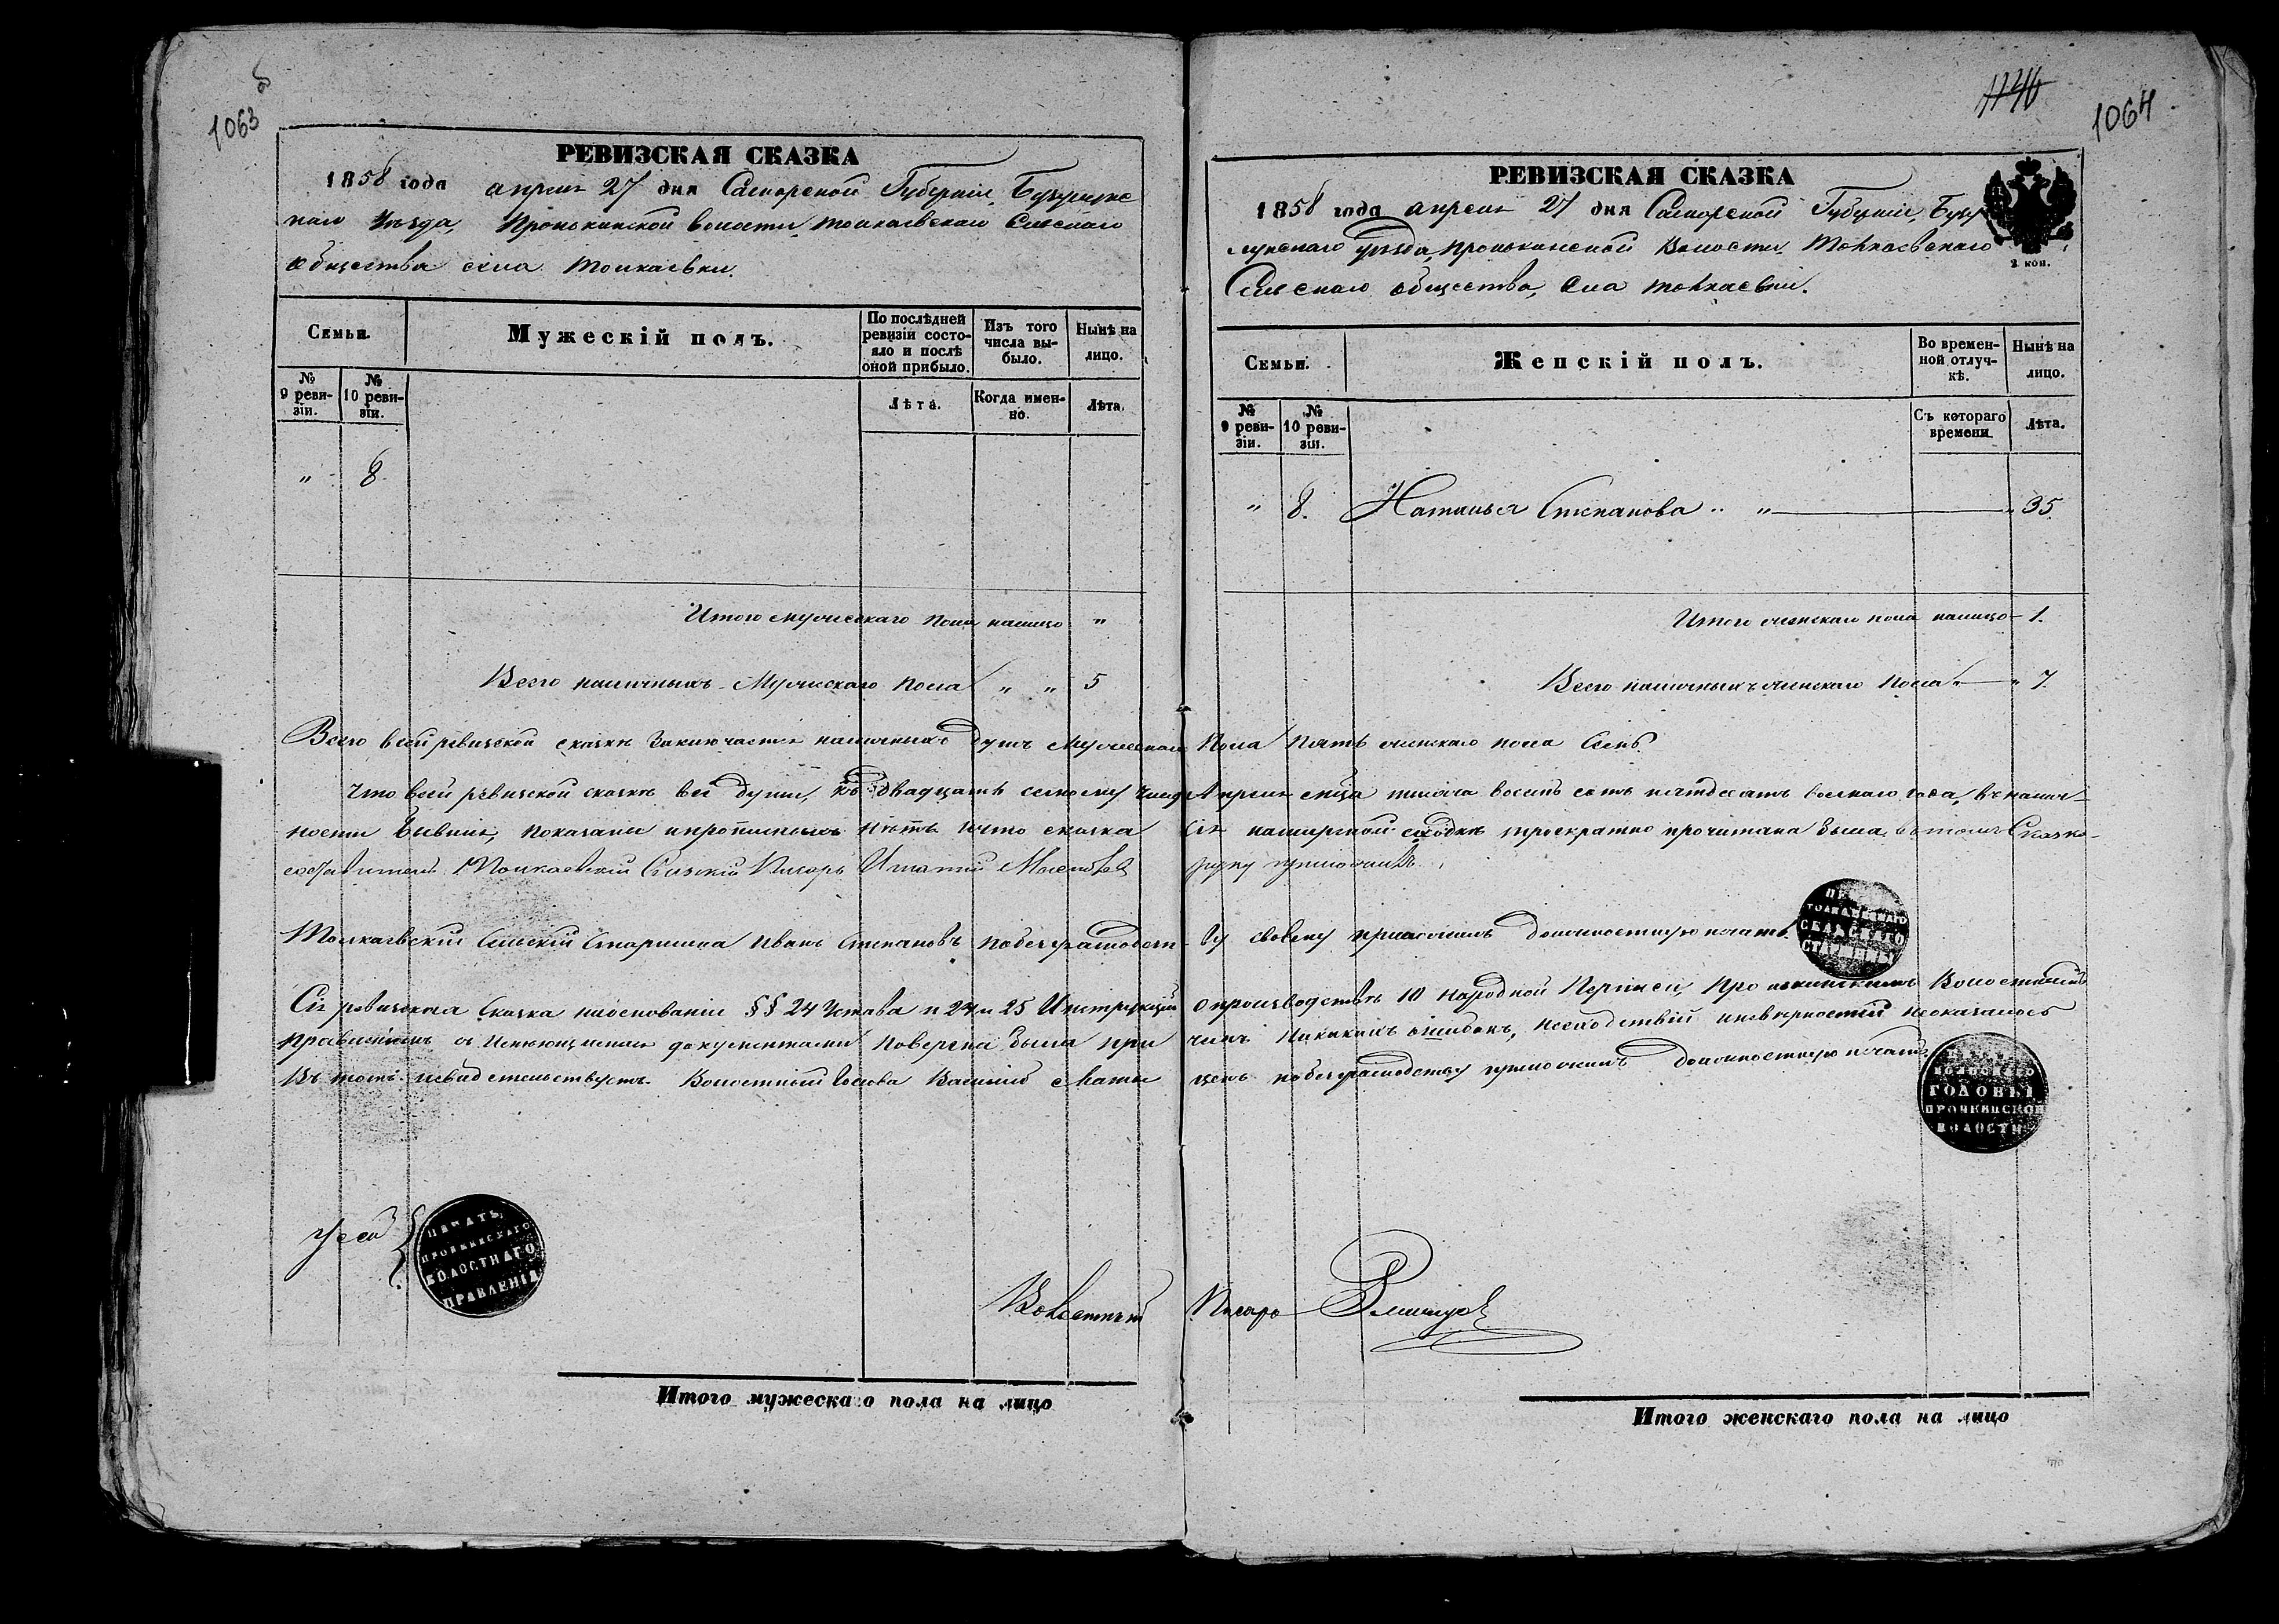 1063 об
РЕВИЗСКАЯ СКАЗКА
1858 года апреля 27 дня Самарской Губернии, Бузулукс
каго Уезда, Пронькинской волости Толкаевскаго Сельскаго
общества села Толкаевки.
Семьи.
Мужескій полъ.
По послѣдней
ревизіи состо-
яло и послѣ
оной прибыло.
Изъ того
числа вы-
было.
Нынѣ на
лицо.
№
9 реви-
зіи.
№
10 реви-
зіи.
Лѣта.
Когда имен-
но.
Лѣта.
" 8
Итого мужескаго пола налицо "
Всего наличныхъ Мужескаго пола " " 5
1064
РЕВИЗСКАЯ СКАЗКА
1858 года апреля 27 дня Самарской Губерніи, Бузу
лукскаго уезда, Пронькинской Волости Толкаевскаго
Сельскаго общества, села Толкаевки.
2 коп.
Семьи.
Женскій полъ.
Во времен-
ной отлуч-
кѣ.
Нынѣ на
лицо.
№
9 реви-
зіи.
№
10 реви-
зіи.
Съ котораго
времени.
Лѣта.
" 8. Наталья Степанова " " " 35
Итого женскаго пола налицо 1.
Всего наличныхъ женскаго пола " " 7.
Всего в сей ревизской сказке заключается наличныхъ душъ мужескаго пола пять женскаго пола семь
Что в сей ревизской сказке все души, къ двадцать седьмому числу Апреля м-ца тысяча восемь сотъ пятдесятъ восьмаго года, в налич-
ности бывшия, показаны и прописныхъ нетъ и что сказка сия на мирской сходке троекратно прочитана была в томъ Сказко-
составитель Толкаевскій Сельскій Писарь Игнатий руку приложилъ
Толкаевскій Сельскій Старшина Иванъ Степановъ по безграмотст- ву своему приложилъ должностную печать
СЕЛЬСКАГО
СТАРШИНЫ
Сія ревизская Сказка на основаніи §§ 24 Устава и 24 и 25 Инструкций о производстве 10 народной Переписи, Пронькинскимъ Волостнымъ
Правленіемъ съ имеющимися документами поверена была при чемъ никакихъ ошибокъ, несходствій и неверностей неоказалось
Въ томъ и свидетельствуетъ. Волостный Голова Василий по безграмотству приложилъ должностную печать
ГОЛОВЫ
ПРОНКИНСКОЙ
ВОЛОСТИ
ПЕЧАТЬ
ПРОНЬКИНСКАГО
ВОЛОСТНАГО
ПРАВЛЕНІЯ
Волостный Писарь
Итого мужескаго пола на лицо
Итого женскаго пола на лицо